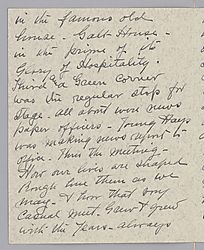 in the famous old
house - Galt House -
in the prime of its
Glory of Hospitality.
Third & Green corner
was the regular stop for
stage - all about were news
paper offices - Young Hays
was making news report to
office. Thus the meeting -
How our lives are shaped
Rough hew them as we
may - & how that
Casual meet. Grew & grew
with the years - always